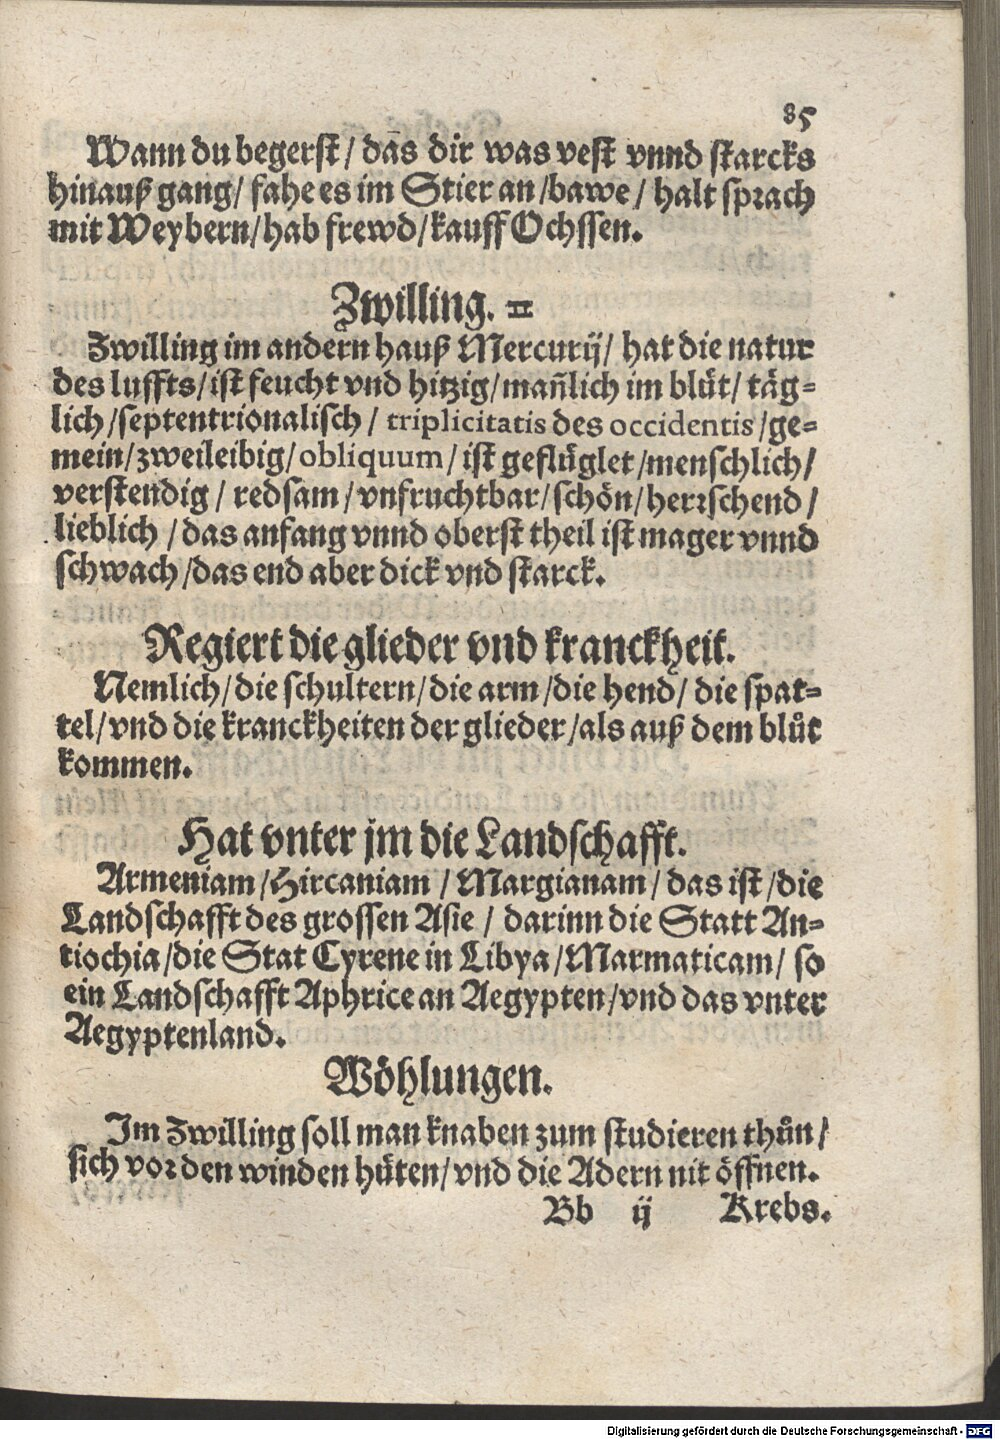 85
Wann du begerst / das̄ dir was vest vnnd starcks
hinauß gang / fahe es im Stier an / bawe / halt sprach
mit Weybern / hab frewd / kauff Ochssen.
Zwilling. ♊
Zwilling im andern hauß Mercurij / hat die natur
des luffts / ist feucht vnd hitzig / man̄lich im blůt / täg=
lich / septentrionalisch / triplicitatis des occidentis / ge=
mein / zweileibig / obliquum / ist geflüglet / menschlich /
verstendig / redsam / vnfruchtbar / schön / herrschend /
lieblich / das anfang vnnd oberst theil ist mager vnnd
schwach / das end aber dick vnd starck.
Regiert die glieder vnd kranckheit.
Nemlich / die schultern / die arm / die hend / die spat=
tel / vnd die kranckheiten der glieder / als auß dem blůt
kommen.
Hat vnter jm die Landschafft.
Armeniam / Hircaniam / Margianam / das ist / die
Landschafft des grossen Asie / darinn die Statt An=
tiochia / die Stat Cyrene in Libya / Marmaticam / so
ein Landschafft Aphrice an Aegypten / vnd das vnter
Aegyptenland.
Wöhlungen.
Im Zwilling soll man knaben zum studieren thůn /
sich vor den winden hüten / vnd die Adern nit öffnen.
Bb ij Krebs.
Digitalisierung gefördert durch die Deutsche Forschungsgemeinschaft - DFG